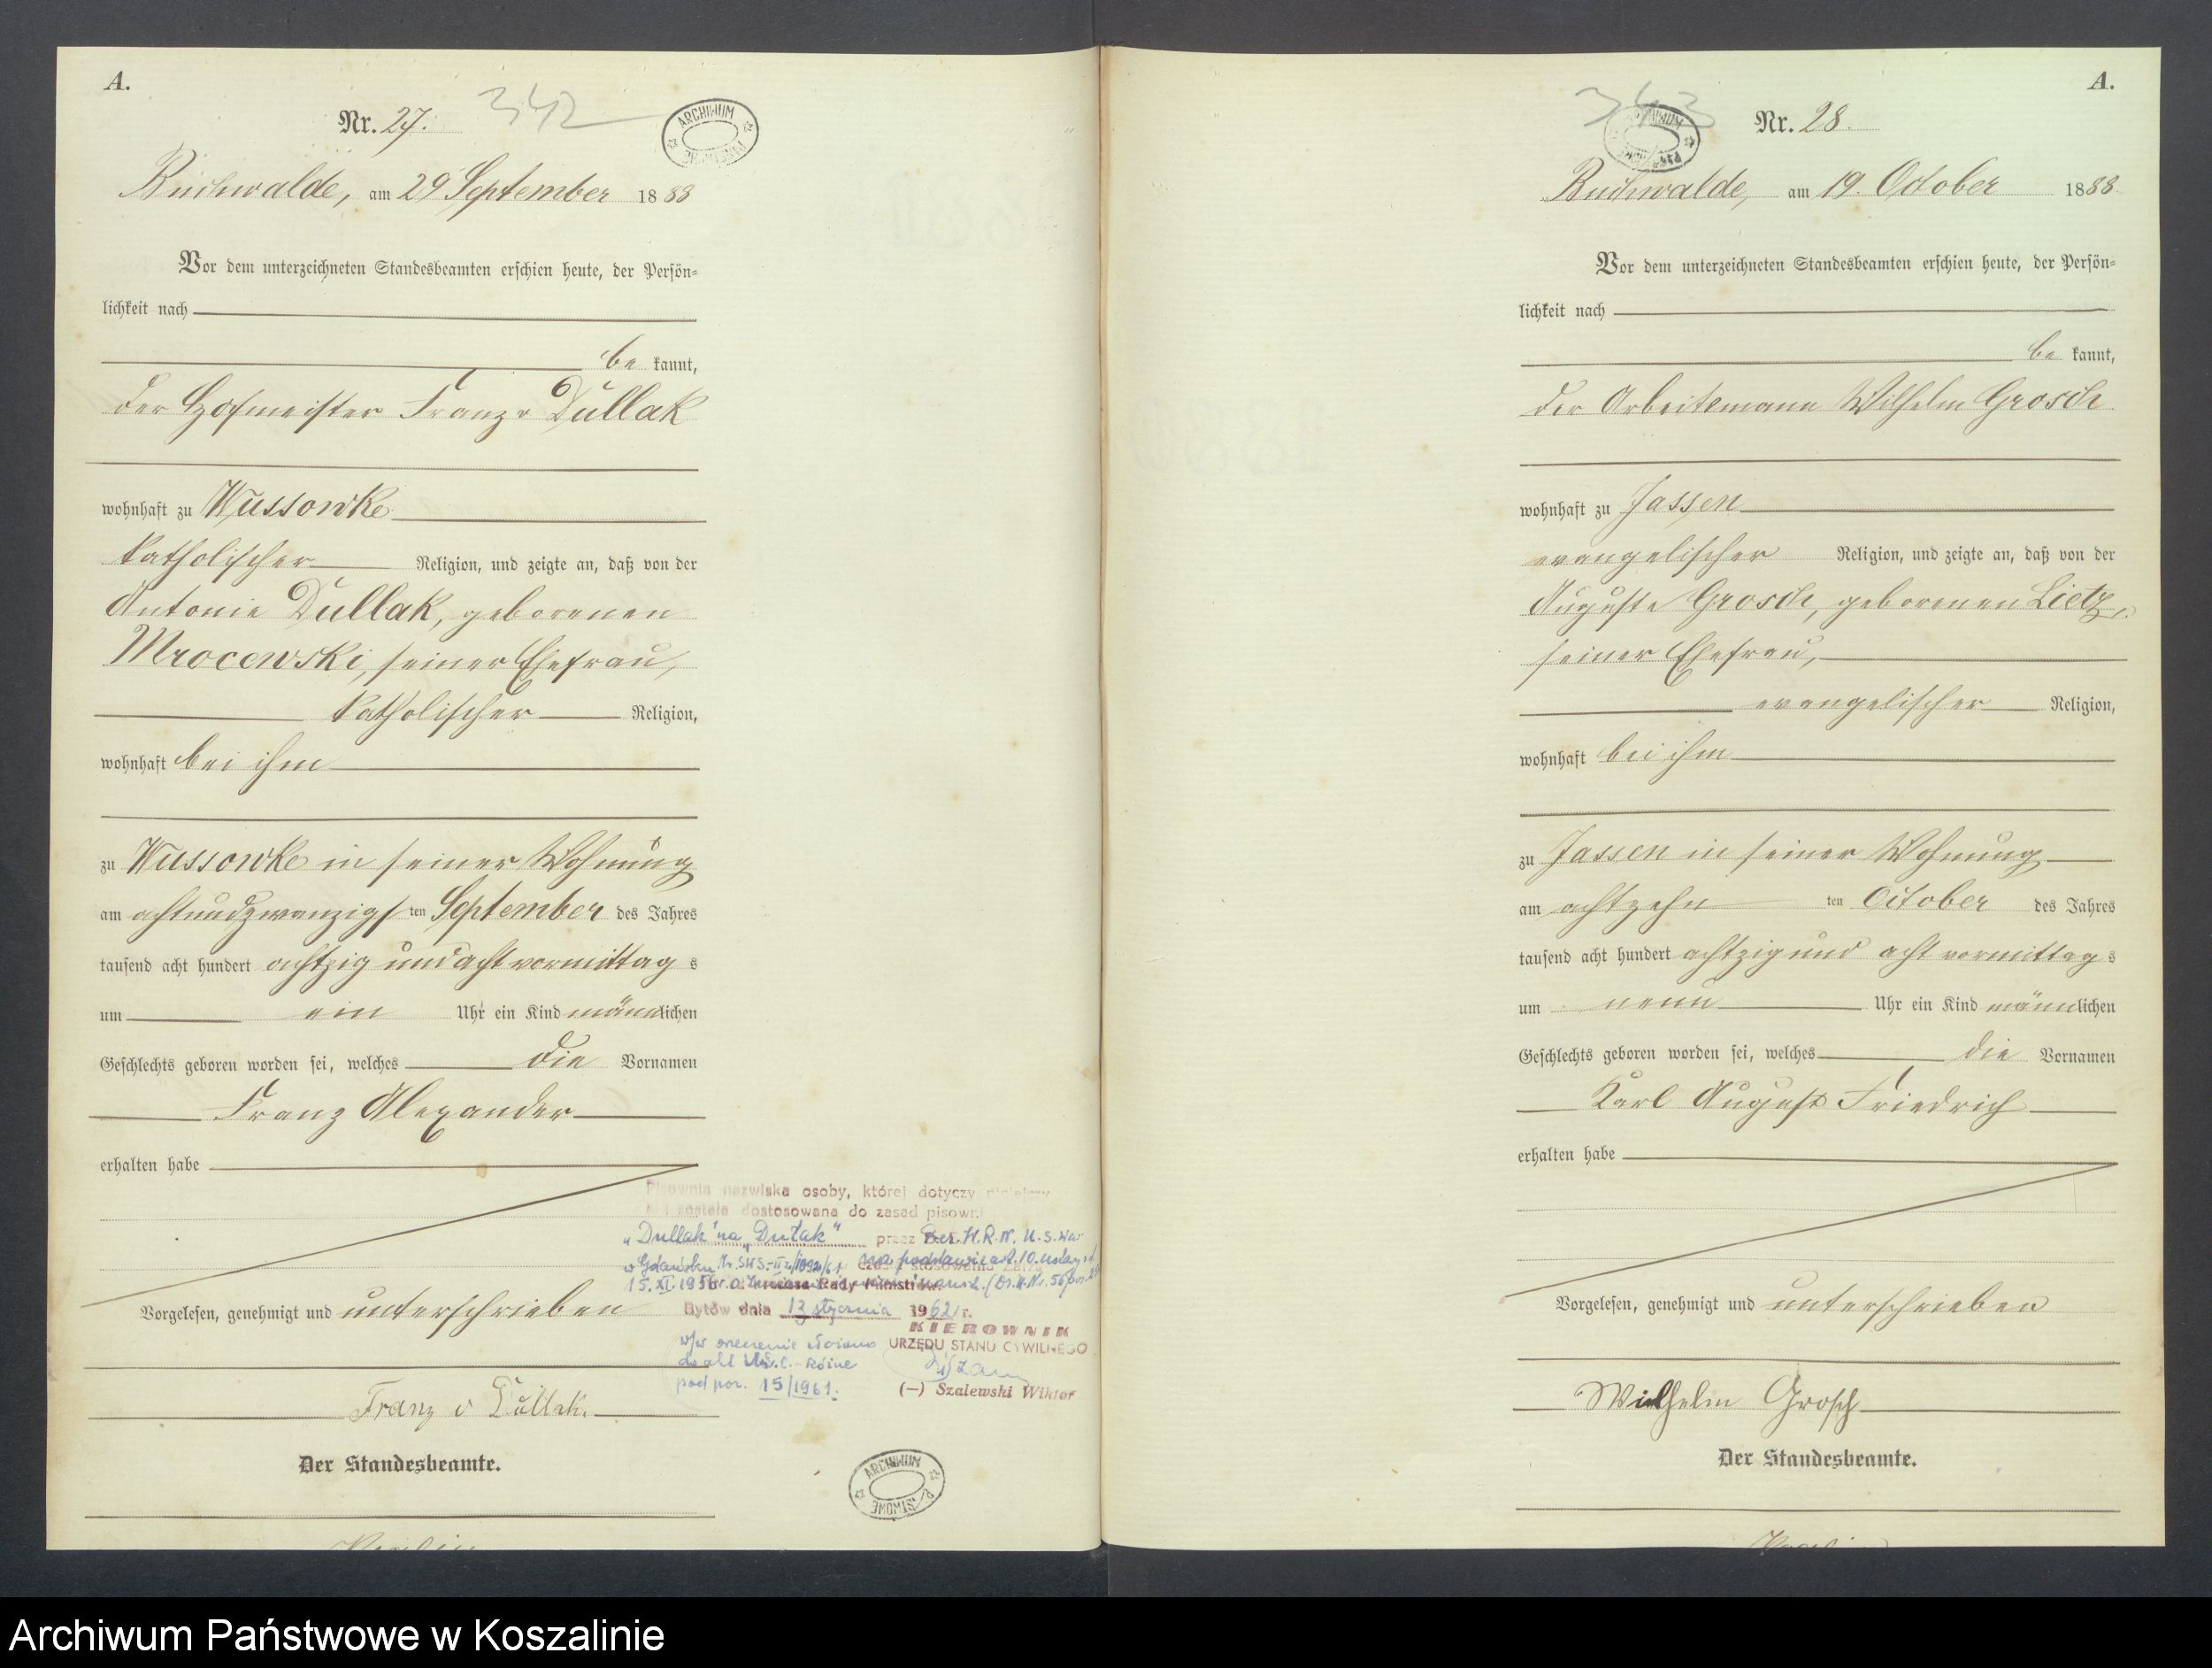 A.
Nr. 27. 342
ARCHIWUM
Buchwalde, am 29 September 1888
Vor dem unterzeichneten Standesbeamten erschien heute, der Persön=
lichkeit nach
be kannt,
der Hofmeister Franz v Dullak
wohnhaft zu Wussowke
katholischer Religion, und zeigte an, daß von der
Antonie Dullak, geborenen
Mrocewski, seiner Ehefrau,
katholischer Religion,
wohnhaft bei ihm
zu Wussowke in seiner Wohnung
am achtundzwanzigs ten September des Jahres
tausend acht hundert achtzig und acht vormittag s
um ein Uhr ein Kind männlichen
Geschlechts geboren worden sei, welches die Vornamen
Franz Alexander
erhalten habe
Pisownia nazwiska osoby, której dotyczy niniejszy
akt została dostosowana do zasad pisowni
"Dullak" na "Dułak" przez Prez. W.R.N. U.S.Wew
w Gdańsku Nr. na podstawie art. 10. ustawy
15. XI. 1956 r. o Rady Ministrów (Dz.U. Nr. 56 poz.
Vorgelesen, genehmigt und unterschrieben
Bytów dnia 13 stycznia 1962 r.
KIEROWNIK
URZĘDU STANU CYWILNEGO
w/w orzeczenie złożono
do akt U.S.C. - Różne
pod poz. 15/1961.
(—) Szalewski Wiktor
Franz v Dullak.
Der Standesbeamte.
ARCHIWUM
A.
343 Nr. 28.
Buchwalde, am 19. October 1888
Vor dem unterzeichneten Standesbeamten erschien heute, der Persön=
lichkeit nach
be kannt,
der Arbeitsmann Wilhelm Grosch
wohnhaft zu Jassen
evangelischer Religion, und zeigte an, daß von der
Auguste Grosch, geborenen Lietz,
seiner Ehefrau,
evangelischer Religion,
wohnhaft bei ihm
zu Jassen in seiner Wohnung
am achtzehn ten October des Jahres
tausend acht hundert achtzig und acht vormittag s
um neun Uhr ein Kind männlichen
Geschlechts geboren worden sei, welches die Vornamen
Karl August Friedrich
erhalten habe
Vorgelesen, genehmigt und unterschrieben
Wilhelm Grosch
Der Standesbeamte.
Archiwum Państwowe w Koszalinie